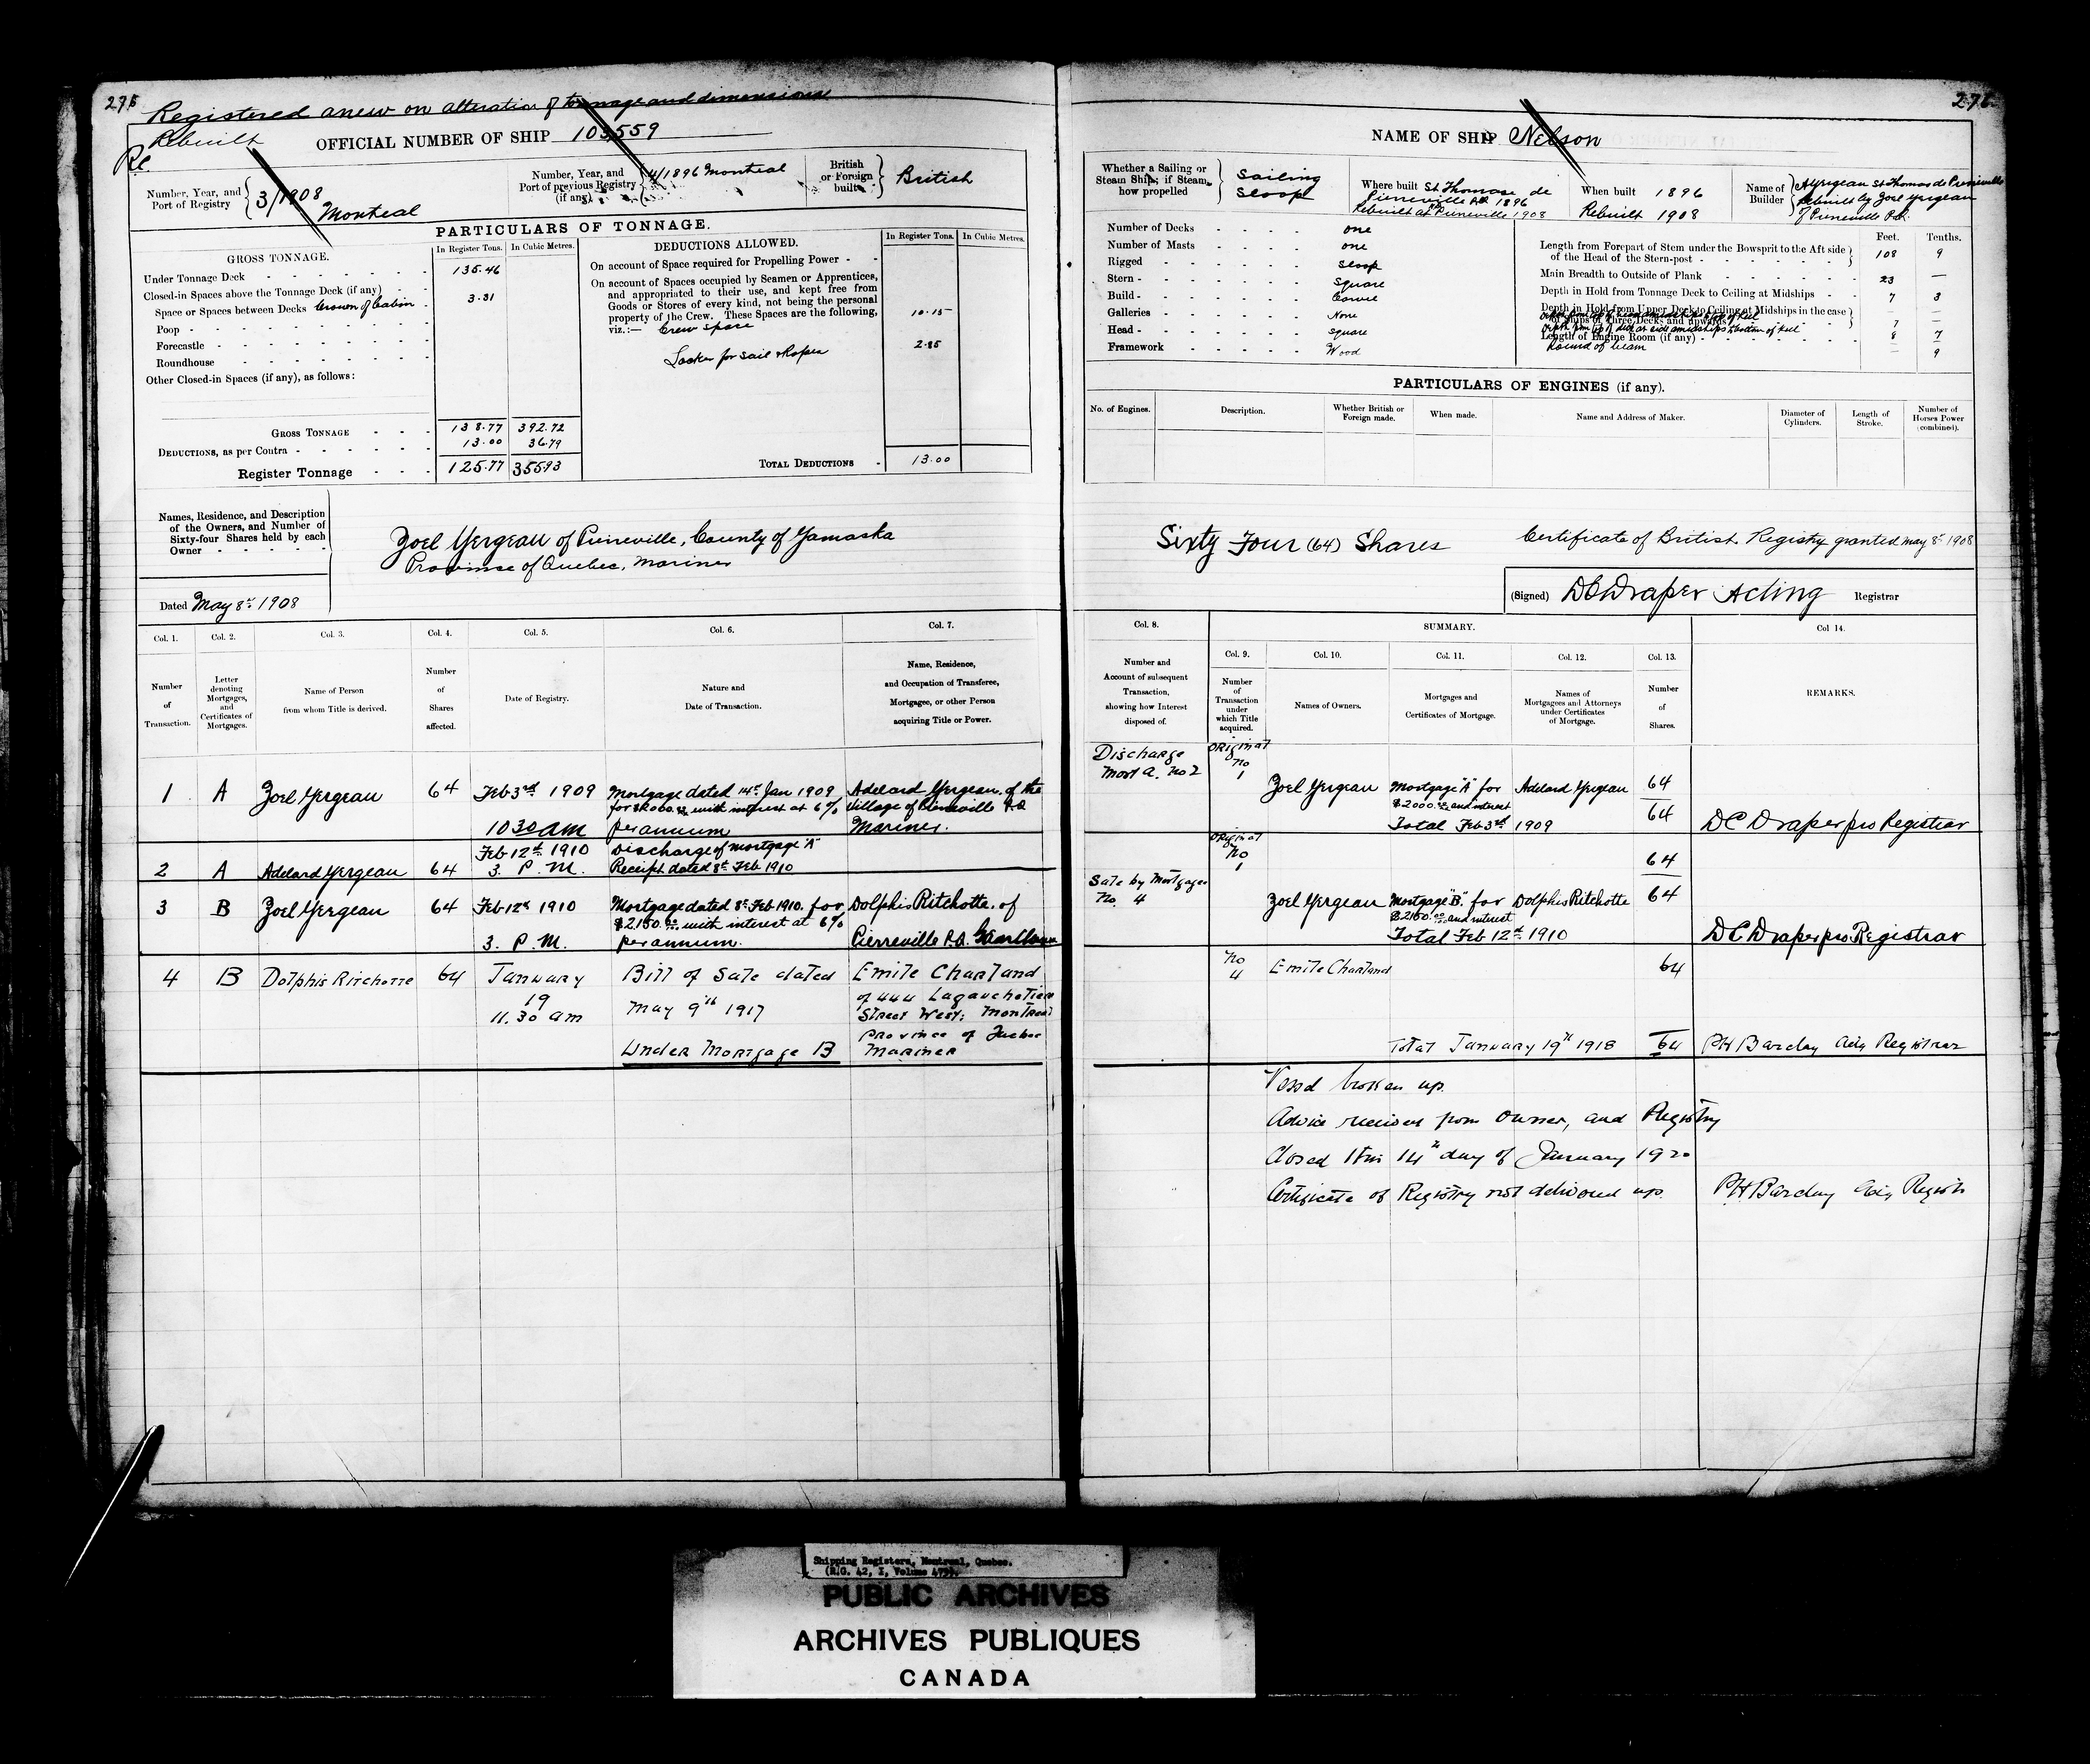 275
Registered anew on alteration of tonnage and dimensions
Rebuilt
OFFICIAL NUMBER OF SHIP 103559
Number, Year, and Port of Registry 3/1908 Montreal
Number, Year, and Port of previous Registry (if any) 4/1896 Montreal
British or Foreign built British
PARTICULARS OF TONNAGE.
GROSS TONNAGE.
In Register Tons. In Cubic Metres.
Under Tonnage Deck 135.46
Closed-in Spaces above the Tonnage Deck (if any)
Space or Spaces between Decks Crown of Cabin 3.31
Poop
Forecastle
Roundhouse
Other Closed-in Spaces (if any), as follows:
GROSS TONNAGE 138.77 392.72
DEDUCTIONS, as per Contra 13.00 36.79
Register Tonnage 125.77 355.93
DEDUCTIONS ALLOWED.
In Register Tons. In Cubic Metres.
On account of Space required for Propelling Power
On account of Spaces occupied by Seamen or Apprentices,
and appropriated to their use, and kept free from
Goods or Stores of every kind, not being the personal
property of the Crew. These Spaces are the following,
viz.:— Crew space 10.15
Locker for sail & Ropes 2.85
TOTAL DEDUCTIONS 13.00
Names, Residence, and Description
of the Owners, and Number of
Sixty-four Shares held by each
Owner
Zoel Yergeau of Pierreville, County of Yamaska
Province of Quebec, Mariner
Dated May 8th 1908
Col. 1. Col. 2. Col. 3. Col. 4. Col. 5. Col. 6. Col. 7.
Number of Transaction.
Letter denoting Mortgages, and Certificates of Mortgages.
Name of Person from whom Title is derived.
Number of Shares affected.
Date of Registry.
Nature and Date of Transaction.
Name, Residence, and Occupation of Transferee, Mortgagee, or other Person acquiring Title or Power.
1 A Zoel Yergeau 64 Feb 3rd 1909 Mortgage dated 14th Jan 1909 Adelard Yergeau of the
for $2000.00 with interest at 6% Village of Pierreville P.Q
10 30 am per annum Mariner.
2 A Adelard Yergeau 64 Feb 12th 1910 3. P. M. Discharge of mortgage "A"
Receipt dated 8th Feb 1910
3 B Zoel Yergeau 64 Feb 12th 1910 Mortgage dated 8th Feb 1910. for Dolphis Ritchotte. of
$2150.00 with interest at 6%
3. P. M. per annum. Pierreville P.Q.
4 B Dolphis Ritchotte 64 January Bill of Sale dated Emile Chartand
19 of 444 Lagauchetiere
11.30 am May 9th 1917 Street West; Montreal
Province of Quebec
Under Mortgage B Mariner
276
NAME OF SHIP Nelson
Whether a Sailing or Steam Ship; if Steam, how propelled Sailing Sloop
Where built St Thomas de Pierreville P.Q. 1896
Rebuilt at Pierreville 1908
When built 1896
Rebuilt 1908
Name of Builder A Yergeau St Thomas de Pierreville
Rebuilt by Zoel Yergeau
of Pierreville P.Q.
Number of Decks one
Number of Masts one
Rigged Sloop
Stern Square
Build Carvel
Galleries None
Head square
Framework Wood
Feet. Tenths.
Length from Forepart of Stem under the Bowsprit to the Aft side
of the Head of the Stern-post 108 9
Main Breadth to Outside of Plank 23 —
Depth in Hold from Tonnage Deck to Ceiling at Midships 7 3
Depth in Hold from Upper Deck to Ceiling at Midships in the case
of Ships of Three Decks and upwards 7 —
Depth from top of deck at side amidships to bottom of keel 8 7
Length of Engine Room (if any)
Round of beam — 9
PARTICULARS OF ENGINES (if any).
No. of Engines. Description. Whether British or Foreign made. When made. Name and Address of Maker. Diameter of Cylinders. Length of Stroke. Number of Horses Power (combined).
Sixty Four (64) Shares
Certificate of British Registry granted May 8th 1908
(Signed) DC Draper Acting Registrar
Col. 8. SUMMARY. Col 14.
Col. 9. Col. 10. Col. 11. Col. 12. Col. 13.
Number and Account of subsequent Transaction, showing how Interest disposed of.
Number of Transaction under which Title acquired.
Names of Owners.
Mortgages and Certificates of Mortgage.
Names of Mortgagees and Attorneys under Certificates of Mortgage.
Number of Shares.
REMARKS.
Discharge Mort A. No 2
Original No 1
Zoel Yergeau Mortgage "A" for Adelard Yergeau 64
$2000.00 and interest
Total Feb 3rd 1909 64 DC Draper pro Registrar
Original No 1 64
Sale by Mortgagee No. 4
Zoel Yergeau Mortgage "B" for Dolphis Ritchotte 64
$2150.00 and interest
Total Feb 12th 1910 DC Draper pro Registrar
No 4 Emile Chartand 64
Total January 19th 1918 64 PH Barclay actg Registrar
Vessel broken up.
Advice received from owner, and Registry
Closed this 14th day of January 1920
Certificate of Registry not delivered up. PH Barclay actg Registr
Shipping Registers, Montreal, Quebec.
(R.G. 42, I, Volume 475).
PUBLIC ARCHIVES
ARCHIVES PUBLIQUES
CANADA